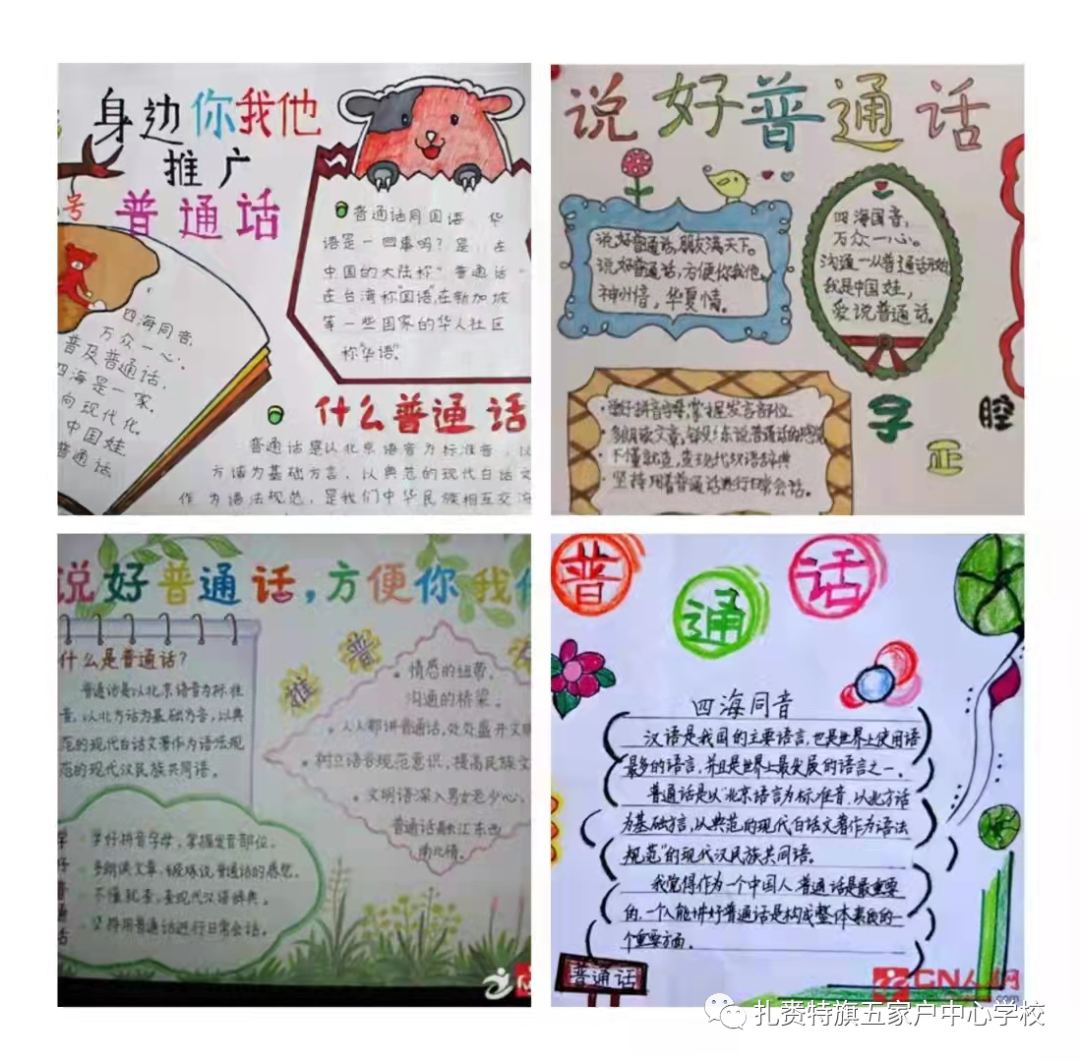 身边你我他
推广
普通话
号
四海同音,
万众一心;
普及普通话,
四海是一家.
向现代化.
中国娃
普通话
普通话同国语、华
语是一回事吗?是,在
中国的大陆称"普通话"
在台湾称"国语",在新加坡
等一些国家的华人社区
称"华语".
什么普通话
普通话是以北京语音为标准音,以
方话为基础方言,以典范的现代白话文
作为语法规范,是我们中华民族相互交流
说好普通话
说好普通话,朋友满天下。
说好普通话,方便你我他。
神州音,华夏情。
四海国音,
万众一心。
沟通一从普通话开始
我是中国娃,
爱说普通话。
学好拼音字母,掌握发言部位
多朗读文章,
不懂就查,查现代汉语辞典
坚持用普通话进行日常会话。
字
正
腔
说好普通话,方便你我他
什么是普通话?
普通话是以北京语音为标准
音,以北方话为基础方言,以典
范的现代白话文著作为语法规
范的现代汉民族共同语。
推
普
情感的纽带,
沟通的桥梁;
人人都讲普通话,处处盛开文明
树立语言规范意识,提高民族文
文明语深入男女老少心,
普通话融江东西
南北情。
学好普通话
学好拼音字母,掌握发音部位.
多朗读文章,锻炼说普通话的感觉.
不懂就查,查现代汉语辞典.
坚持用普通话进行日常会话.
普
通
话
四海同音
汉语是我国的主要语言,也是世界上使用语
最多的语言,并且是世界上最发展的语言之一。
普通话是以"北京语言为标准音,以北方话
为基础方言,从典范的现代白话文著作为语法
规范"的现代汉民族共同语。
我觉得作为一个中国人普通话是最重要
的,一个人能讲好普通话是构成整体素质的一
个重要方面.
普通话
CN人 网
扎赉特旗五家户中心学校